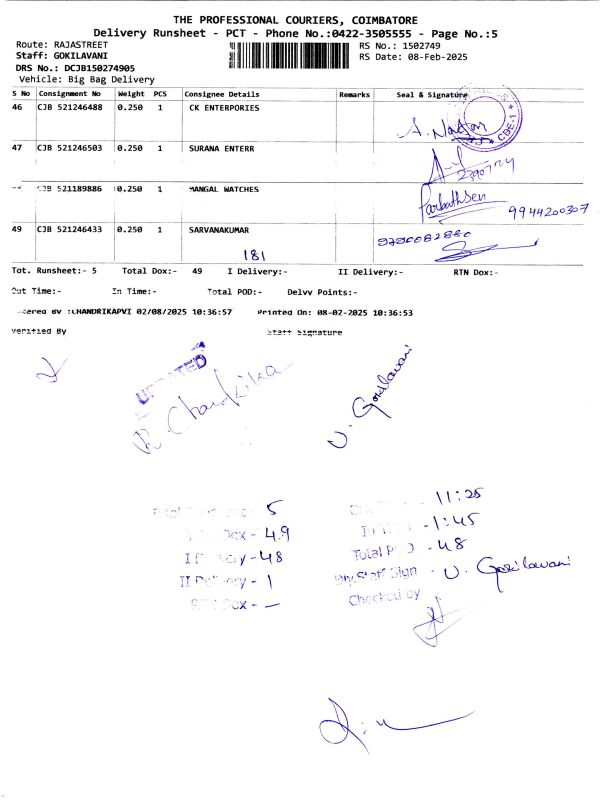 THE PROFESSIONAL COURIERS, COIMBATORE
Delivery Runsheet - PCT - Phone No.:0422-3505555 - Page No.:5
Route: RAJASTREET
RS No.: 1502749
Staff: GOKILAVANI
RS Date: 08-Feb-2025
DRS No.: DCJB150274905
Vehicle: Big Bag Delivery
S No Consignment No Weight PCS Consignee Details Remarks Seal & Signature
46 CJB 521246488 0.250 1 CK ENTERPORIES
47 CJB 521246503 0.250 1 SURANA ENTERR
CJB 521189886 0.250 1 MANGAL WATCHES
9944200307
49 CJB 521246433 0.250 1 SARVANAKUMAR
181
Tot. Runsheet:- 5 Total Dox:- 49 I Delivery:- II Delivery:- RTN Dox:-
Out Time:- In Time:- Total POD:- Delvv Points:-
:CHANDRIKAPVI 02/08/2025 10:36:57 Printed On: 08-02-2025 10:36:53
Verified By Staff Signature
UPDATED
Chandrika
U. Gokilavani
5
11:25
Dox - 49
1:45
I Delivery - 48
Total POD - 48
II Delivery - 1
Dly.Staff Sign - U. Gokilavani
Dox - —
Checked by